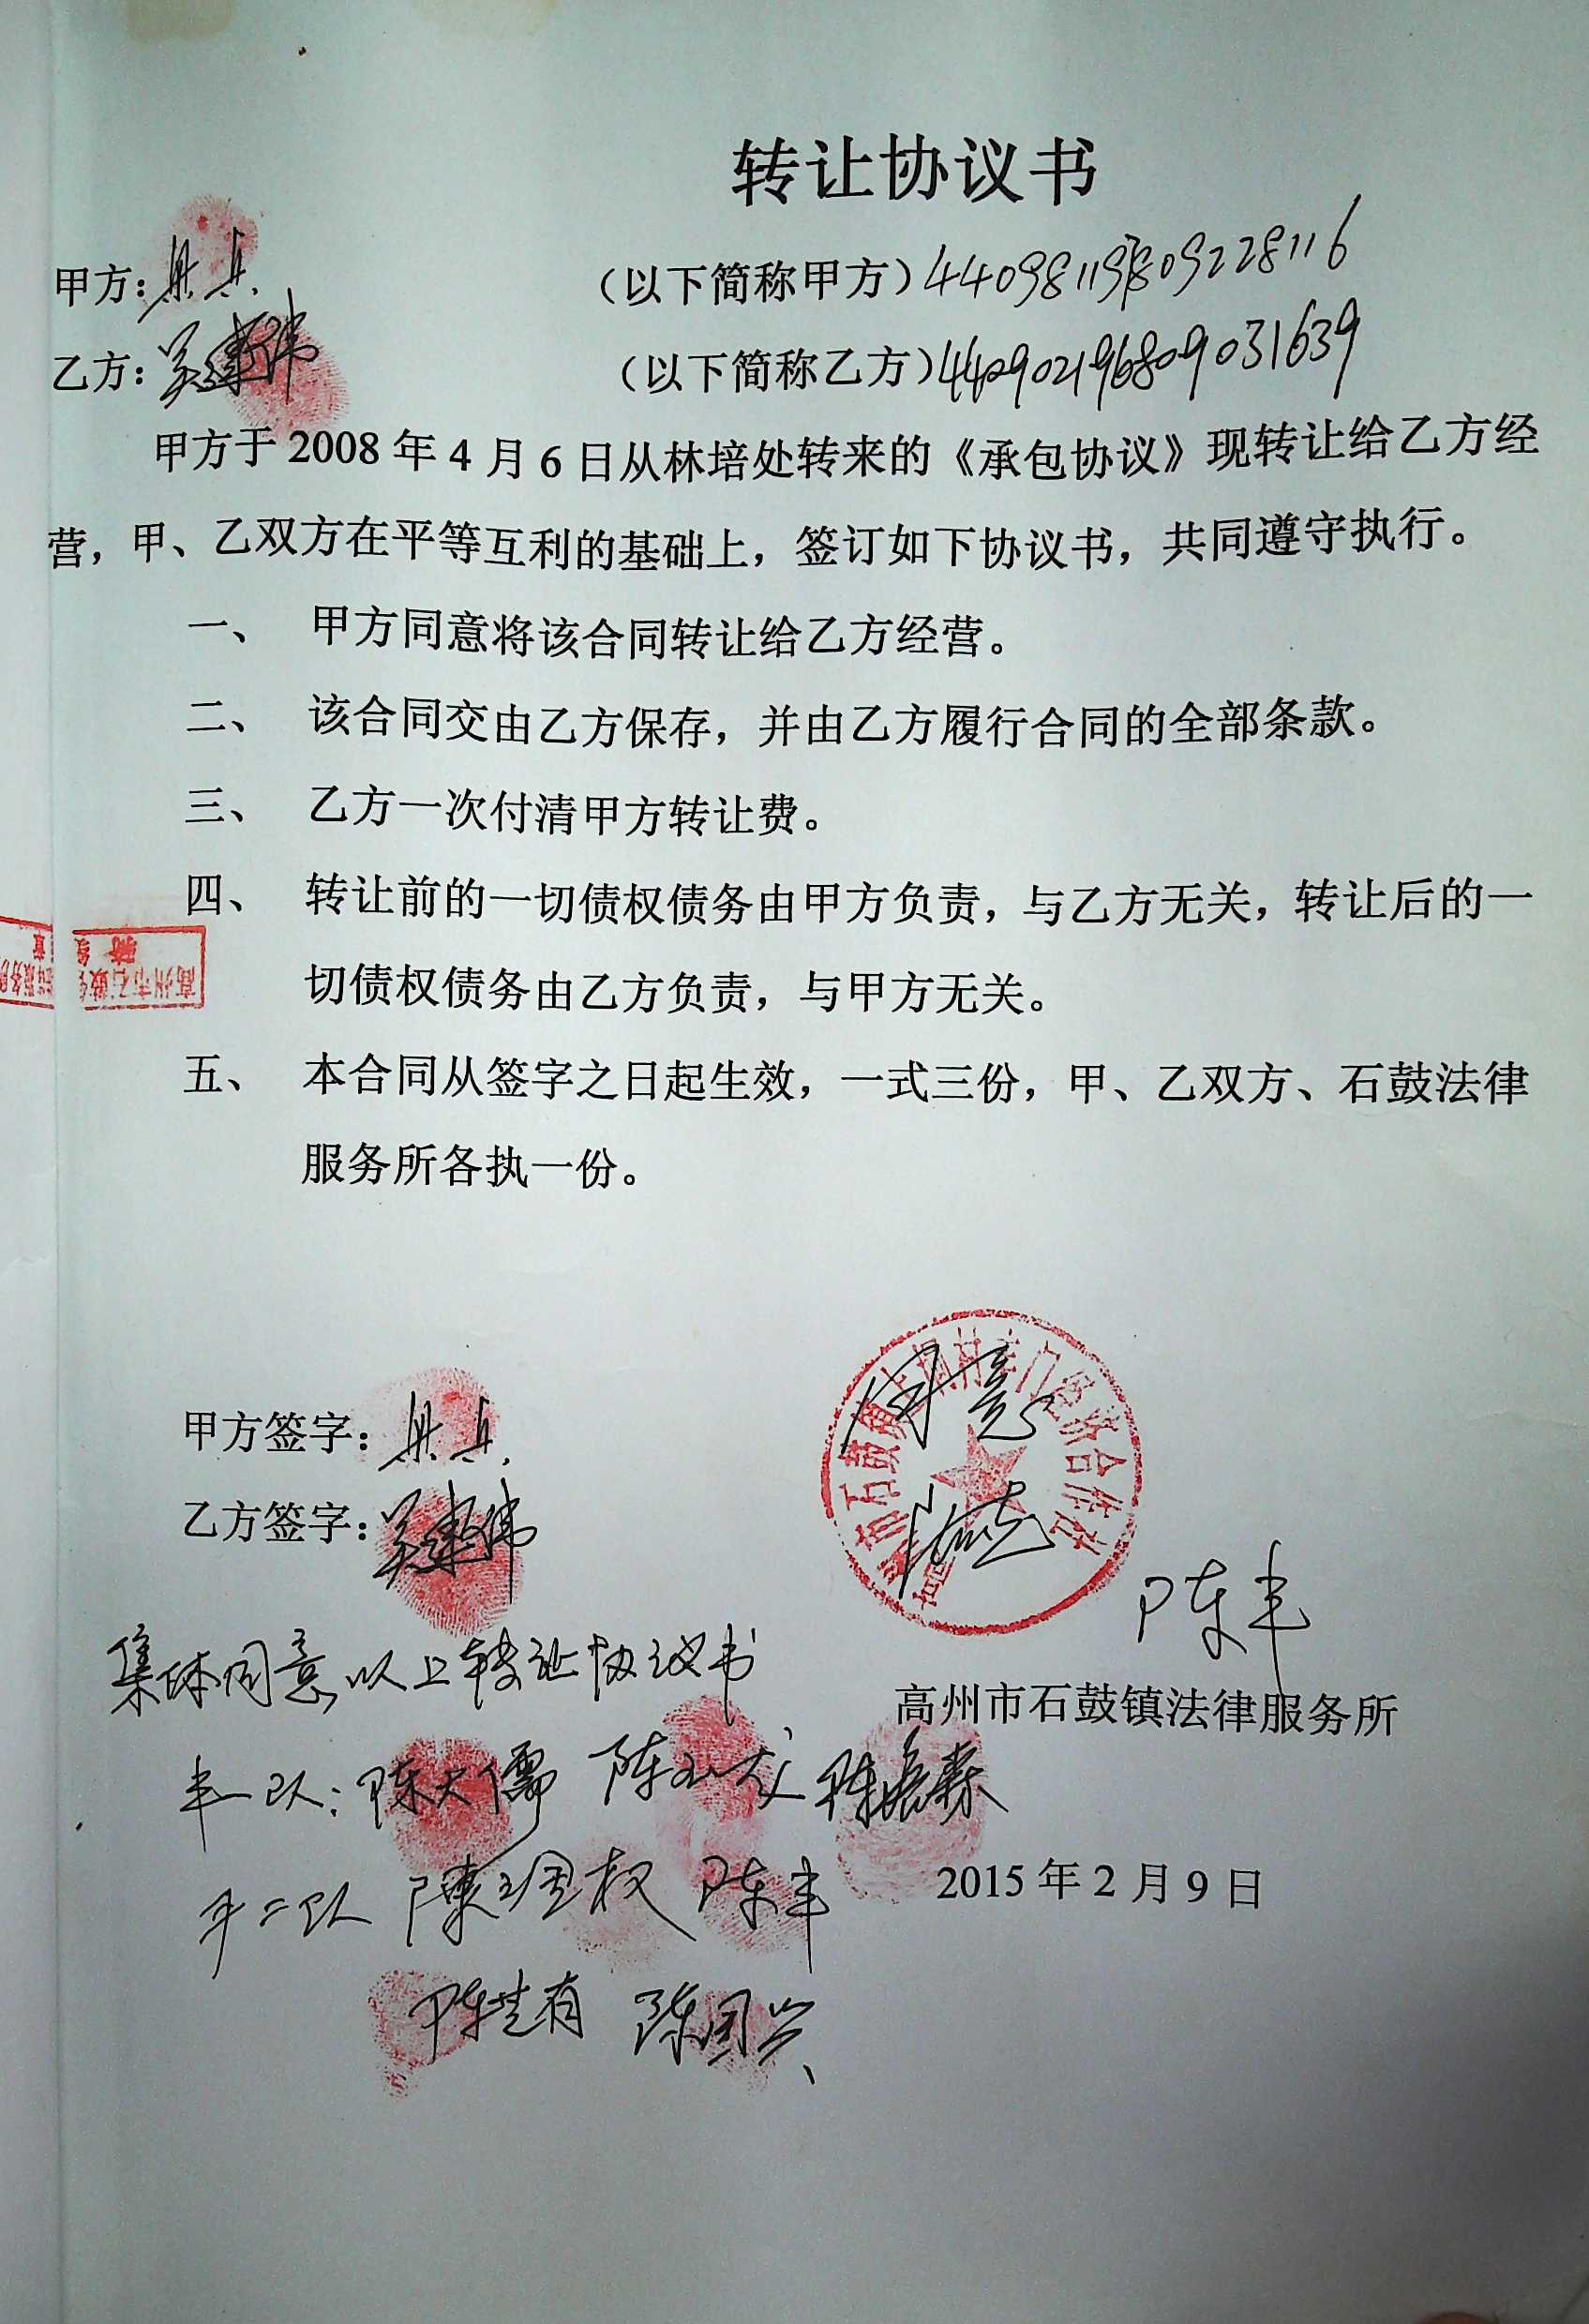 转让协议书
甲方： （以下简称甲方）440981197809228116
乙方：吴建伟 （以下简称乙方）440902196809031639
甲方于 2008 年 4 月 6 日从林培处转来的《承包协议》现转让给乙方经
营，甲、乙双方在平等互利的基础上，签订如下协议书，共同遵守执行。
一、 甲方同意将该合同转让给乙方经营。
二、 该合同交由乙方保存，并由乙方履行合同的全部条款。
三、 乙方一次付清甲方转让费。
四、 转让前的一切债权债务由甲方负责，与乙方无关，转让后的一
切债权债务由乙方负责，与甲方无关。
高州市石鼓
骑
五、 本合同从签字之日起生效，一式三份，甲、乙双方、石鼓法律
服务所各执一份。
同意
甲方签字：
乙方签字：吴建伟
陈丰
集体同意以上转让协议书
高州市石鼓镇法律服务所
丰一队：陈大儒 陈 陈
2015 年 2 月 9 日
丰二队 陳 权 陈丰
陈 有 陈国兴